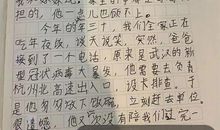 担的，他一点儿也顾不上。
今年的年三十，我们全家正在
吃年夜饭，谈天说笑，突然，爸爸
接到了一个电话，原来是武汉的新
型冠状病毒大暴发，他需要去负责
杭州北高速出入口，设卡排查。于
是他匆匆放下碗筷，立刻赶去单位。
很遗憾，他又没有陪我们过完